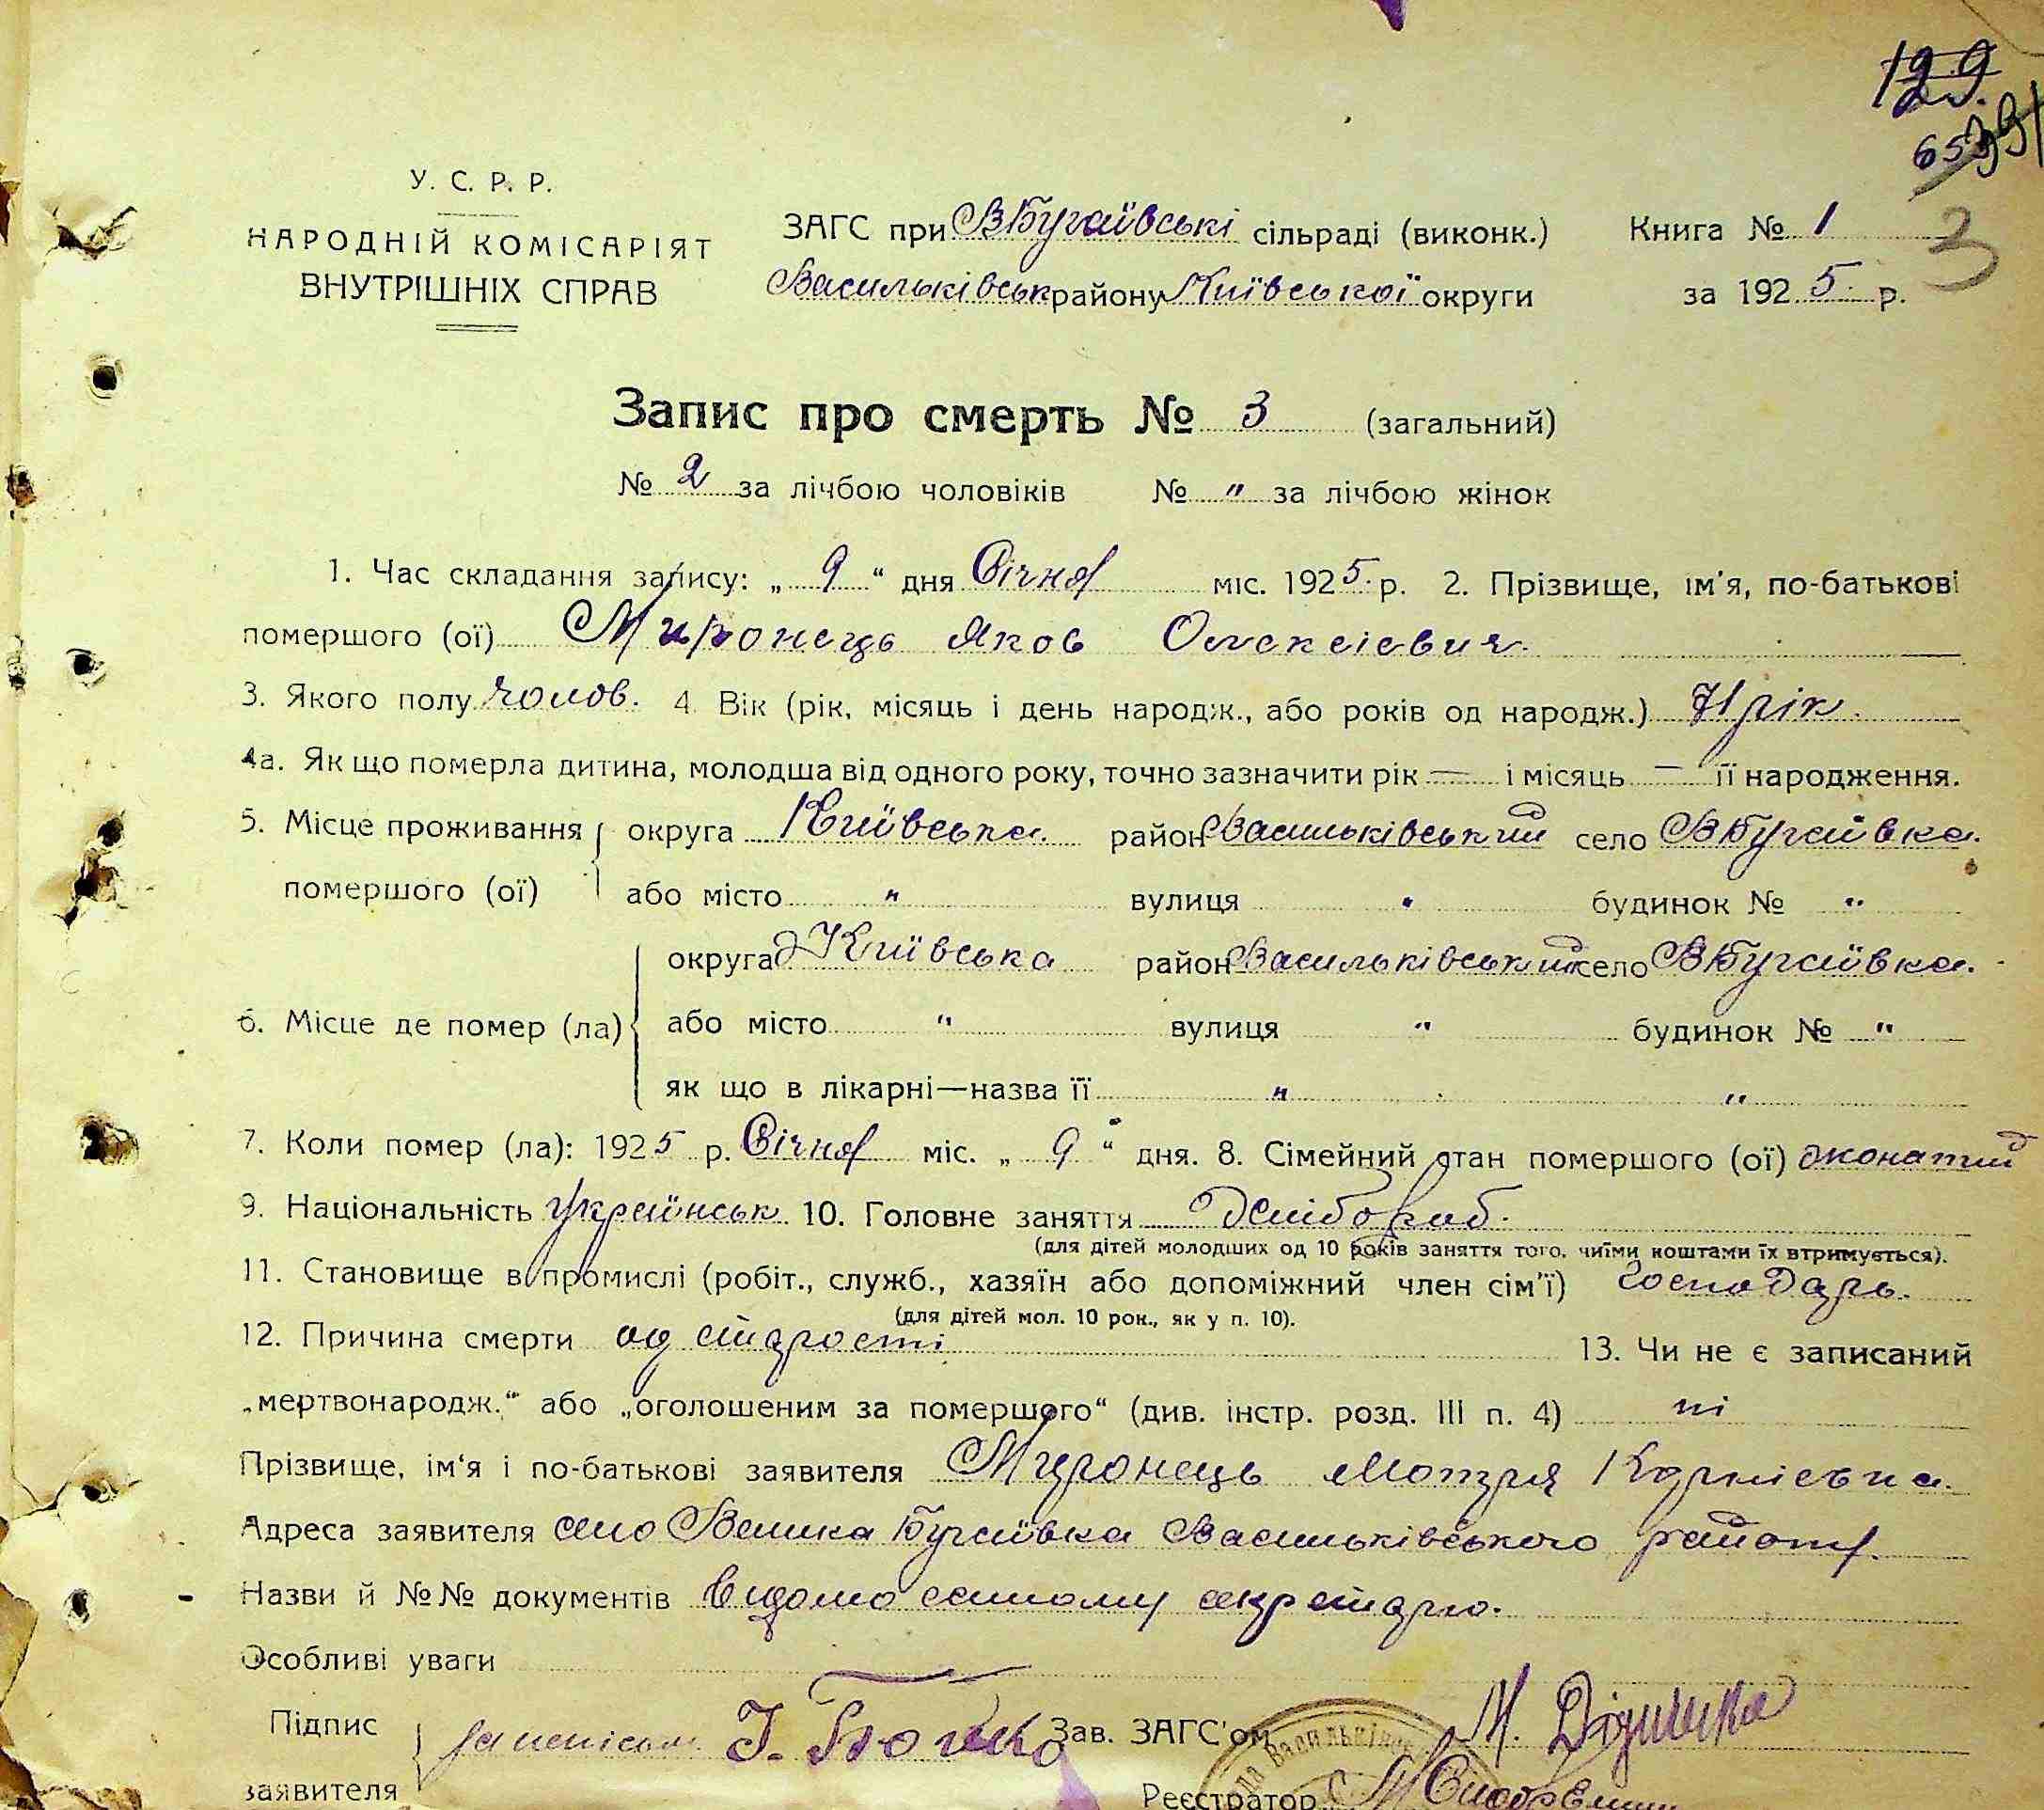 129.
У. С. Р. Р.
НАРОДНІЙ КОМІСАРІЯТ
ВНУТРІШНІХ СПРАВ
ЗАГС при ВБугаївські сільраді (виконк.)
Васильківськ району Київської округи
Книга № 1
за 1925 р.
3
Запис про смерть № 3 (загальний)
№ 2 за лічбою чоловіків № " за лічбою жінок
1. Час складання запису: „ 9 “ дня Січня міс. 1925 р. 2. Прізвище, ім'я, по-батькові
помершого (ої) Миронець Яков Олексієвич.
3. Якого полу чолов. 4. Вік (рік, місяць і день народж., або років од народж.) 71 рік.
4а. Як що померла дитина, молодша від одного року, точно зазначити рік — і місяць — її народження.
5. Місце проживання округа Київська район Васильківський село ВБугаївка.
помершого (ої) або місто " вулиця " будинок № "
округа Київська район Васильківський село ВБугаївка.
6. Місце де помер (ла) або місто " вулиця " будинок № "
як що в лікарні—назва її " "
7. Коли помер (ла): 1925 р. Січня міс. „ 9 “ дня. 8. Сімейний стан помершого (ої) жонатий
9. Національність українськ 10. Головне заняття Хлібороб.
(для дітей молодших од 10 років заняття того, чиїми коштами їх втримується).
11. Становище в промислі (робіт., служб., хазяїн або допоміжний член сім'ї) Господарь.
(для дітей мол. 10 рок., як у п. 10).
12. Причина смерти од старости 13. Чи не є записаний
„мертвонародж.“ або „оголошеним за помершого“ (див. інстр. розд. III п. 4) ні
Прізвище, ім'я і по-батькові заявителя Миронець Мотря Карпієвна.
Адреса заявителя село Велика Бугаївка Васильківського району.
Назви й №№ документів Відомо самому секретарю.
Особливі уваги
Підпис І. Зав. ЗАГС'ом М.
заявителя Реєстратор